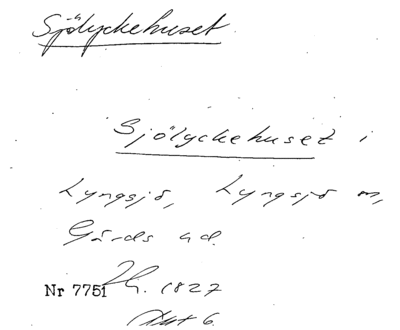 Sjölyckehuset.
Sjölyckehuset i
Lyngsjö, Lyngsjö sn,
Gärds hd.
Nr 7751 Jh. 1827